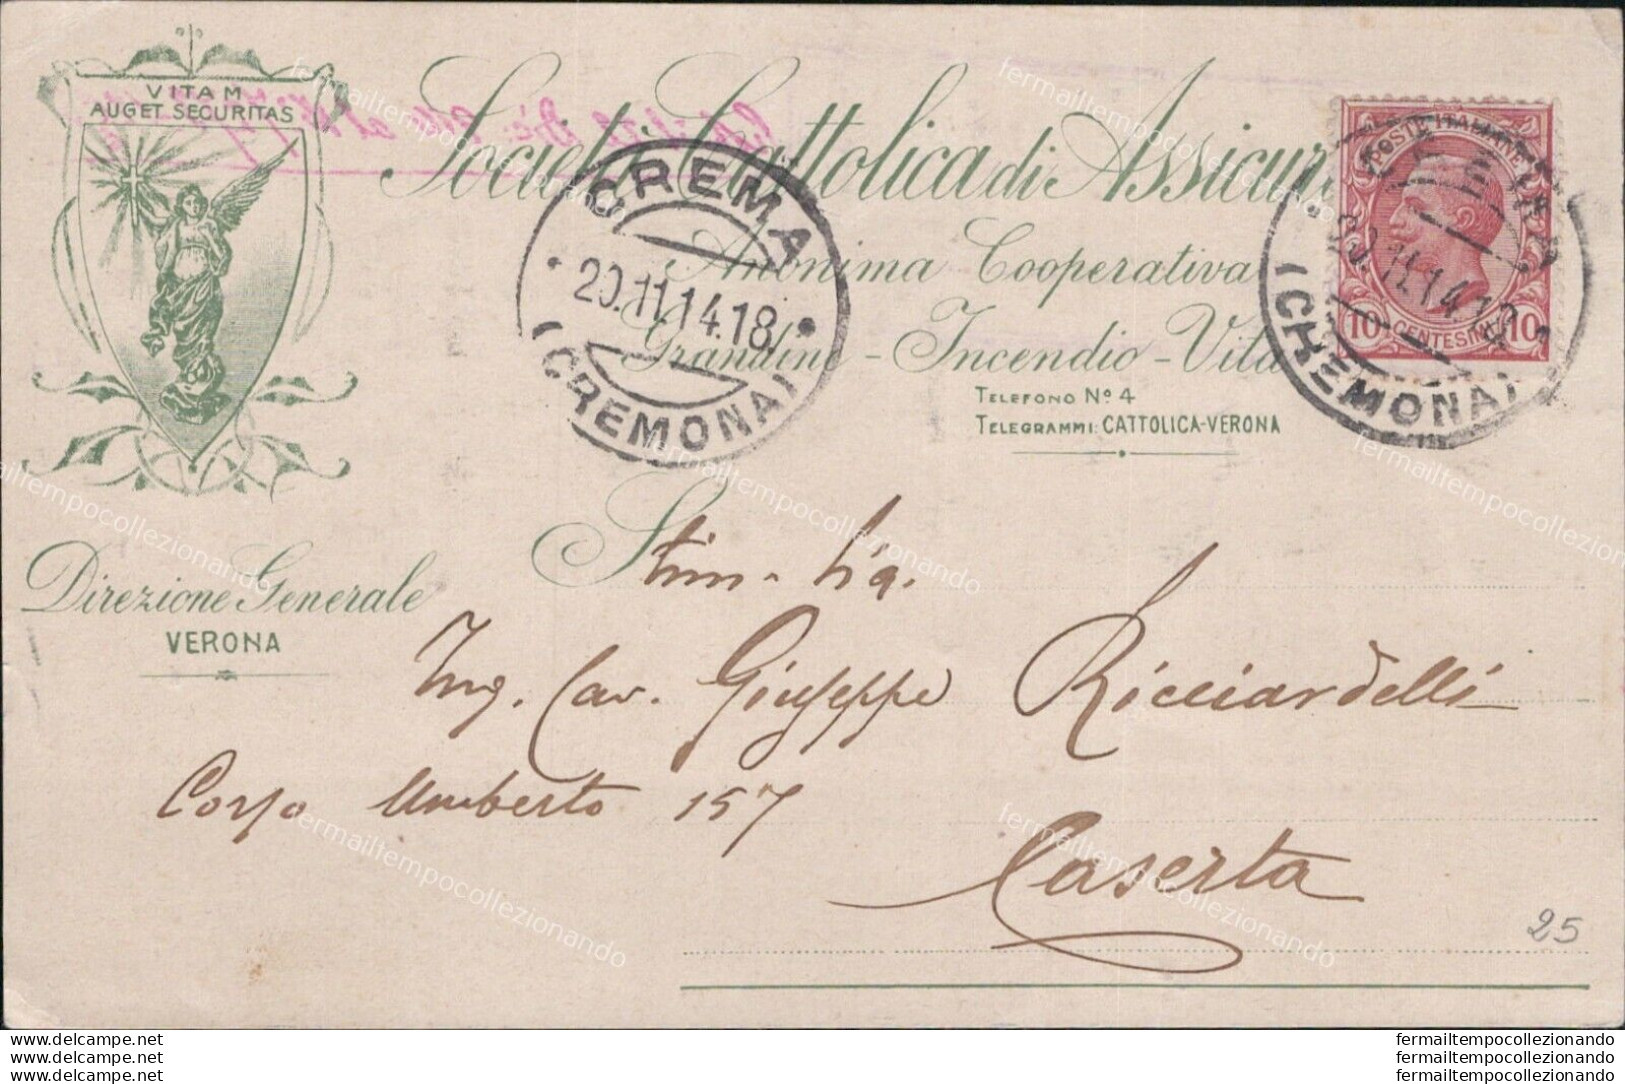 VITAM
AUGET SECURITAS
Società Cattolica di Assicur
Anonima Cooperativa
Grandine - Incendio - Vita
TELEFONO Nº 4
TELEGRAMMI: CATTOLICA-VERONA
Direzione Generale
VERONA
CREMA
20.11.14.18
(CREMONA)
POSTE ITALIANE
10 CENTESIMI 10
(CREMONA)
Stim. Sig.
Ing. Cav. Giuseppe Ricciardelli
Corso Umberto 157
Caserta
25
fermailtempocollezionando
fermailtempocollezionando
fermailtempocollezionando